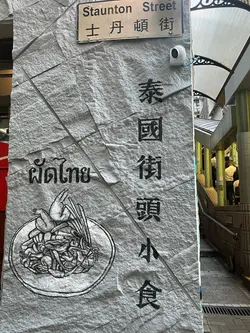 Staunton Street
士丹頓街
泰國街頭小食
ผัดไทย